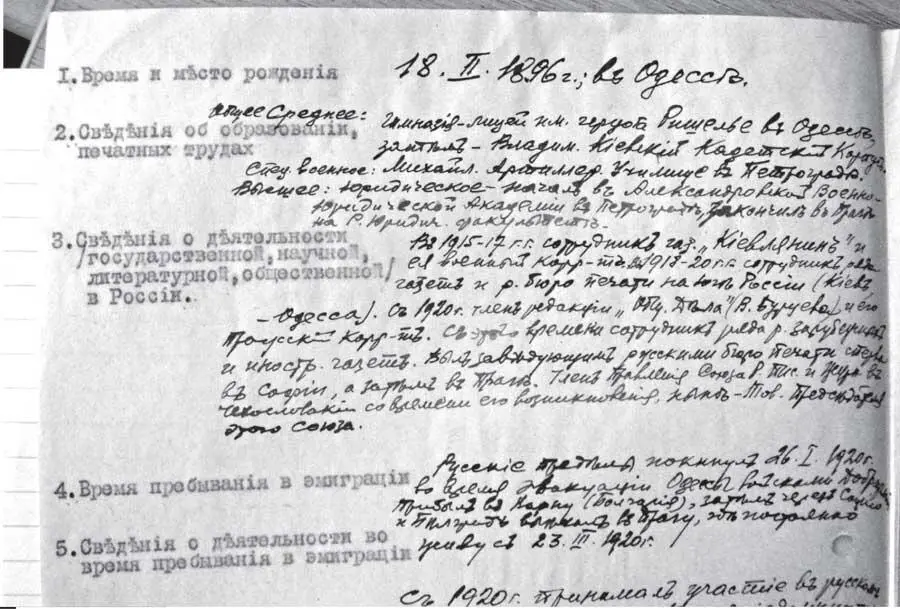 1. Время и мѣсто рожденія 18. II. 1896 г.; въ Одессѣ.
Общее Среднее: Гимназія-лицей им. герцога Ришелье въ Одессѣ,
2. Свѣдѣнія об образованіи, затѣмъ – Владим. Кіевскій Кадетскій Корпусъ.
печатных трудах
Спец. военное: Михайл. Артиллер. Училище въ Петроградѣ.
Высшее: юридическое – началъ въ Александровской Военно-
Юридической Академіи въ Петроградѣ, закончилъ въ Прагѣ
на Р. Юридич. факультетѣ.
3. Свѣдѣнія о дѣятельности Въ 1915-17 г.г. сотрудникъ газ. „Кіевлянинъ" и
/государственной, научной, ея военный корр-тъ. Въ 1918-20 г.г. сотрудникъ
литературной, общественной/ газетъ и р. бюро печати на югѣ Россіи (Кіевъ,
в Россіи.
– Одесса). Съ 1920 г. членъ редакціи „Общ. Дѣла" (В. Бурцева) и его
Пражскій корр-тъ. Съ этого времени сотрудникъ ряда р. зарубежныхъ
и иностр. газетъ. Былъ завѣдующимъ русскими бюро печати
въ Софіи, а затѣмъ въ Прагѣ. Членъ Правленія Союза Р. Пис. и Журн. въ
Чехословакіи со времени его возникновенія, нынѣ – Тов. Предсѣдателя
этого союза.
Русскіе предѣлы покинулъ 26. I. 1920 г.
4. Время пребыванія в эмиграціи во время эвакуаціи Одессы войсками
Прибылъ въ Варну (Болгарія), затѣмъ черезъ Софію
и Бѣлградъ въ Прагу, гдѣ постоянно
5. Свѣдѣнія о дѣятельности во живу съ 23. III. 1920 г.
время пребыванія в эмиграціи
Съ 1920 г. принималъ участіе въ русской